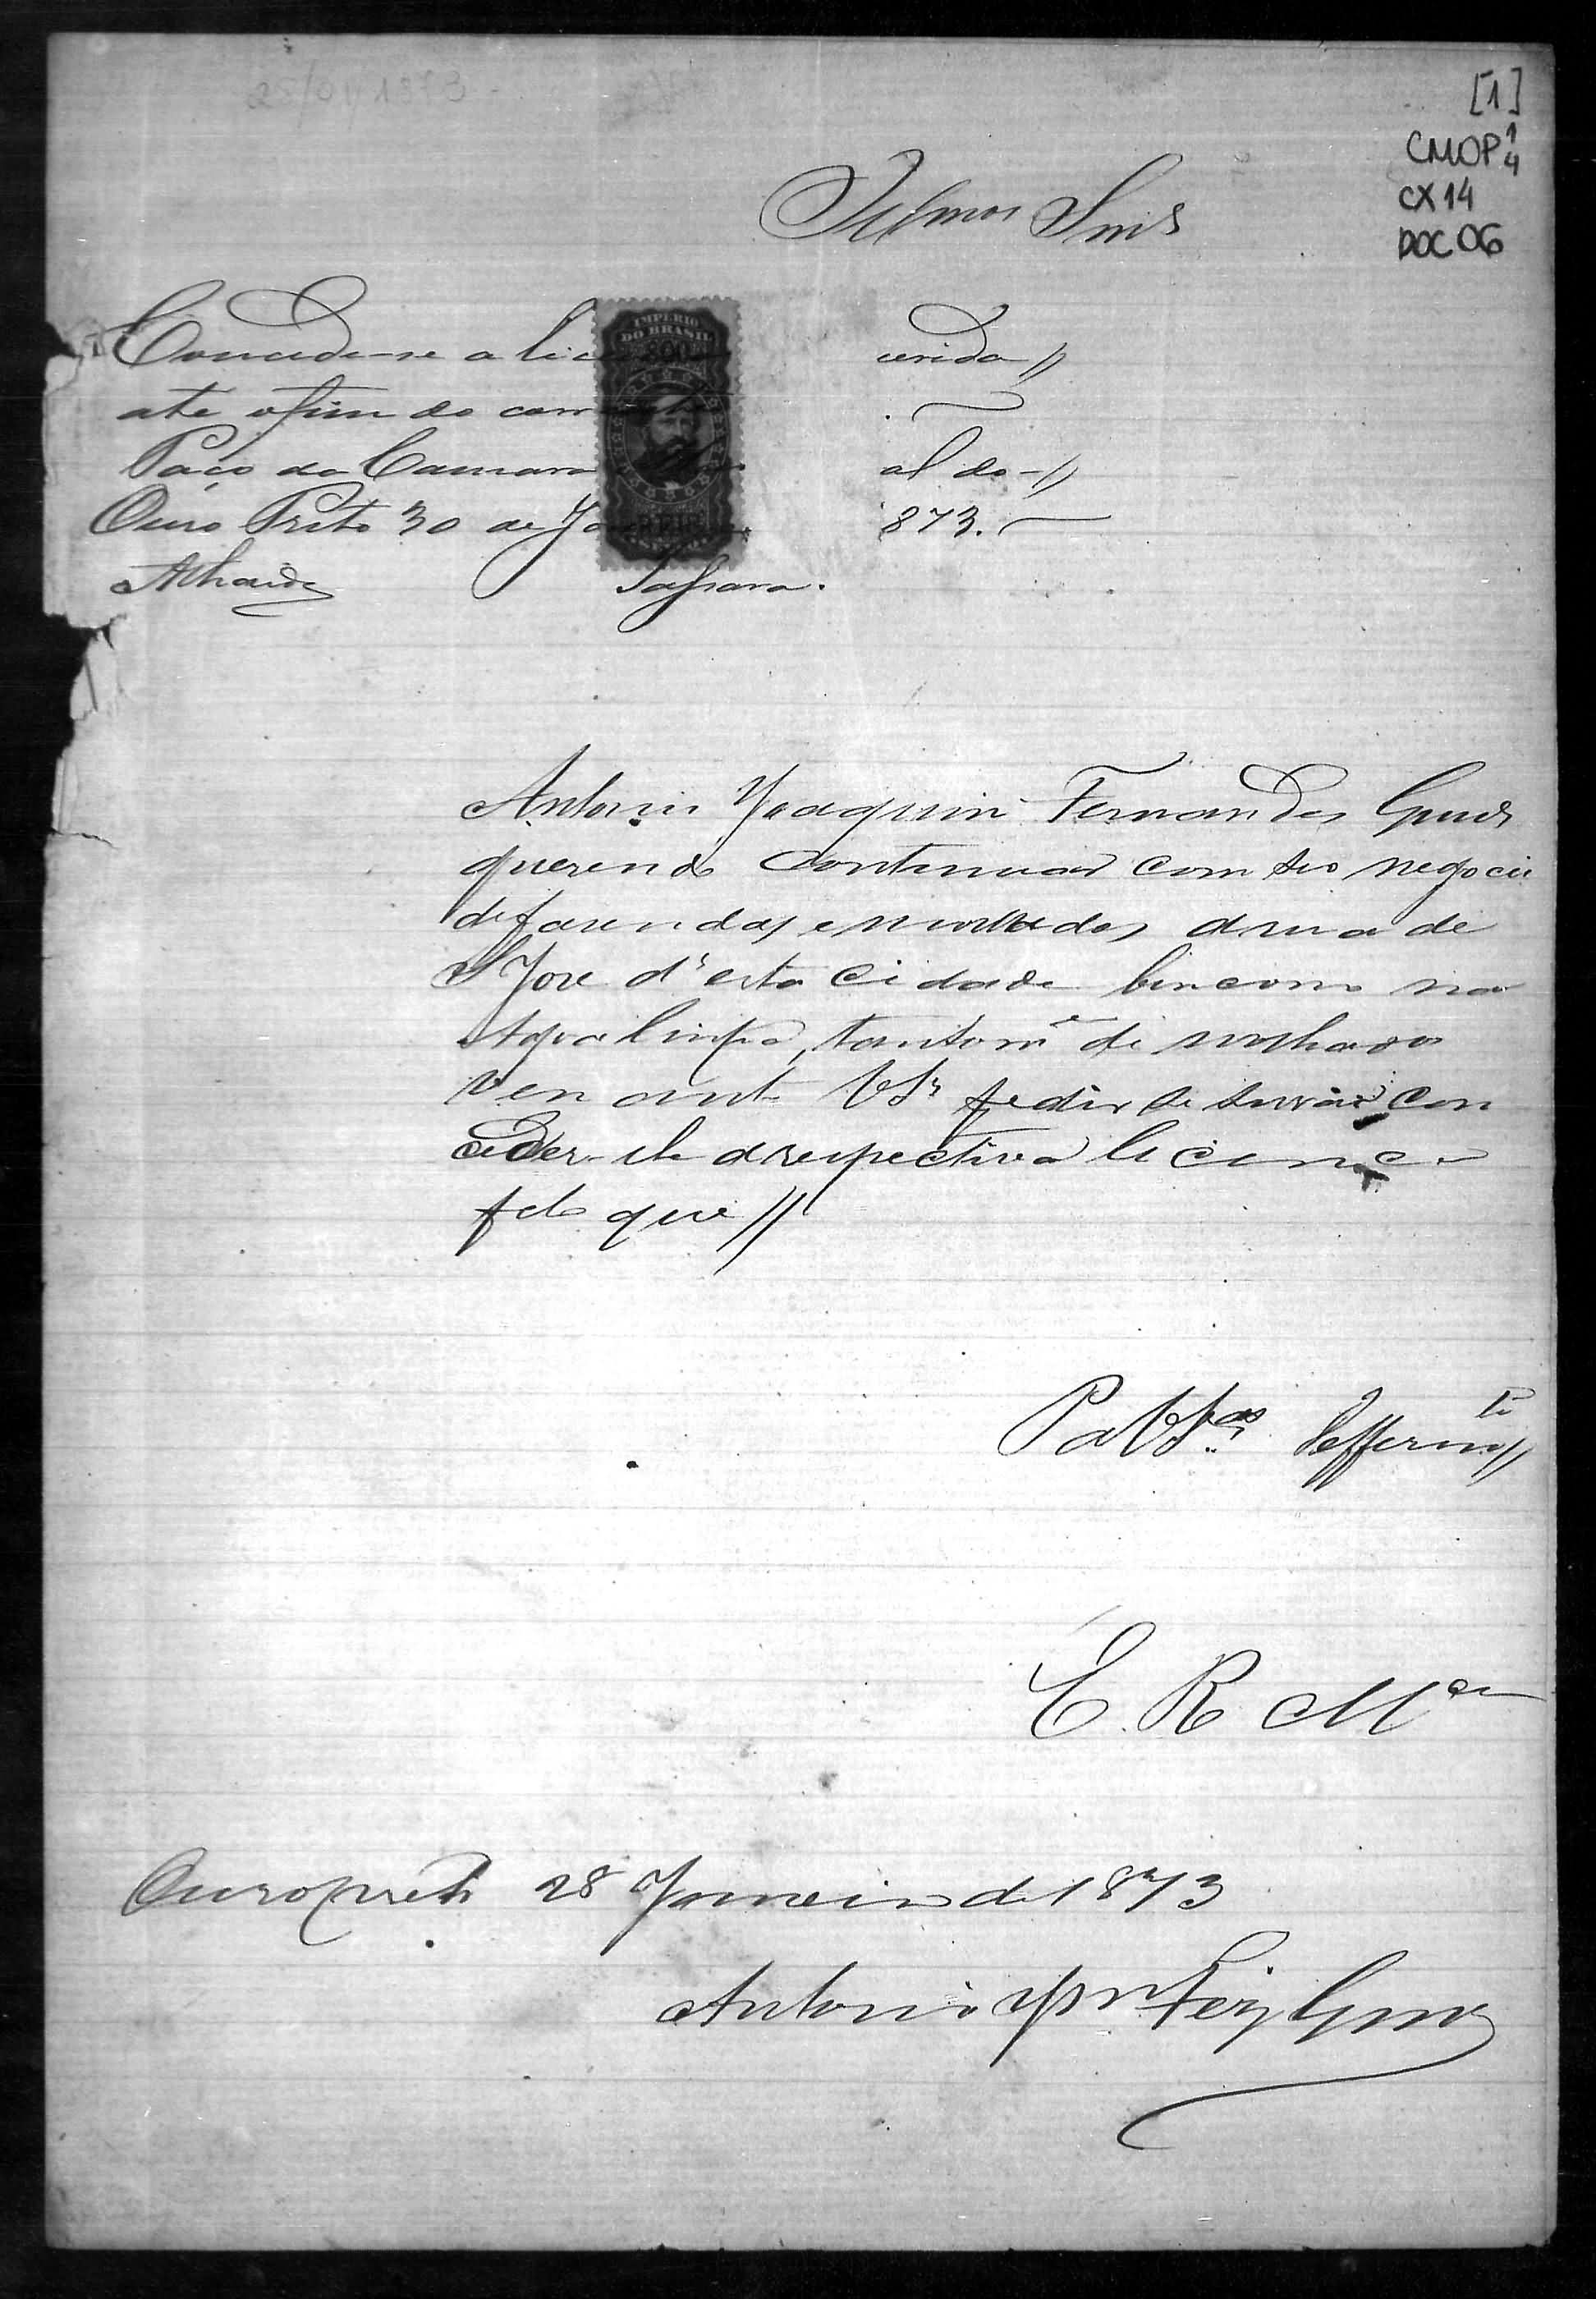 25/01/1873-
[1]
CMOP 1/4
CX 14
DOC 06
Illmos Snrs
Concede-se a lic erida //
ate o fim do corr
Paço da Camara al do - //
Ouro Preto 30 de Ja 873.
Athaide Saffara.
IMPERIO
DO BRASIL
200
REIS
Antonio Joaquim Fernandes Gmes
querendo Continuar com seo negocio
de fasendas e molhados arua de
S Jose d'esta Cidade bem como na
Agoa limpa, tantom de molhados
vem ante VSas pedir se sirvão Con
ceder-lhe a respectiva licença
pelo que //
P a VSas Defferimto //
E. R Mce
Ouro preto 28 Janeiro de 1873
Antonio Jm Fez Gmes